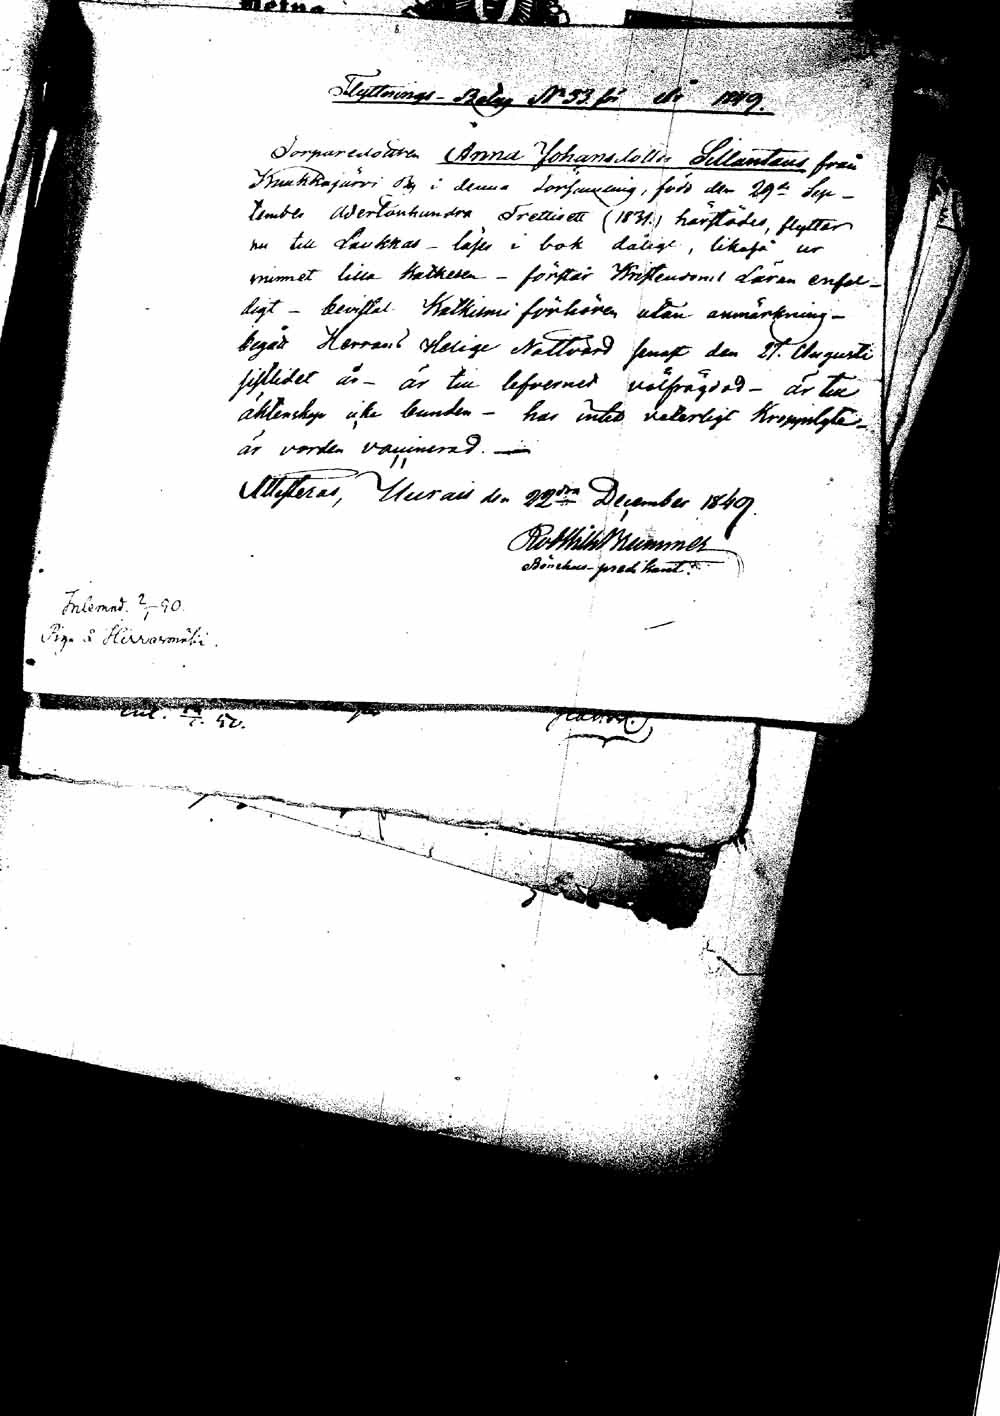 Heinä
Flyttnings-Betyg No 33 för År 1849.
Torparedottren Anna Johansdotter Sillantaus från
Kuukkajärvi By i denna Församling, född den 29de Sep-
tember Adertonhundra Trettiett (1831) härstädes, flyttar
nu till Laukkas - läser i bok dålige, likaså ur
minnet lilla Kathesen - förstår Kristendoms Läran enfal-
digt - bevistat Katkismi förhören utan anmärkning -
begått Herrans Helige Nattvard senast den 27. Augusti
sistlidet år - är till lefverned välfrägdad - är till
äktenskap icke bunden - har intet veterligt Kroppslyte -
är vorden vaccinerad. -
Attesteras, Uurais den 22dra December 1849.
Rob Wilh Brummer
Bönehus-predikant.
Inlemnd. 2/1 -50.
Piga å Hirvasmäki.